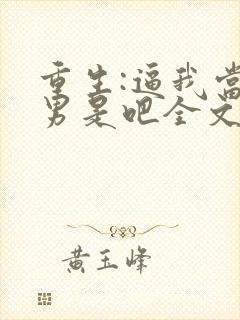 重生:逼我當
男是吧全文
黄玉峰